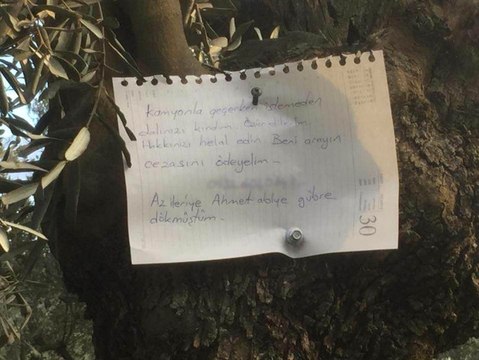 Kamyonla geçerken istemeden
dalınızı kırdım. Özür dilerim.
Hakkınızı helal edin. Beni arayın
cezasını ödeyelim.
Az ileriye Ahmet abiye gübre
dökmüştüm.
30